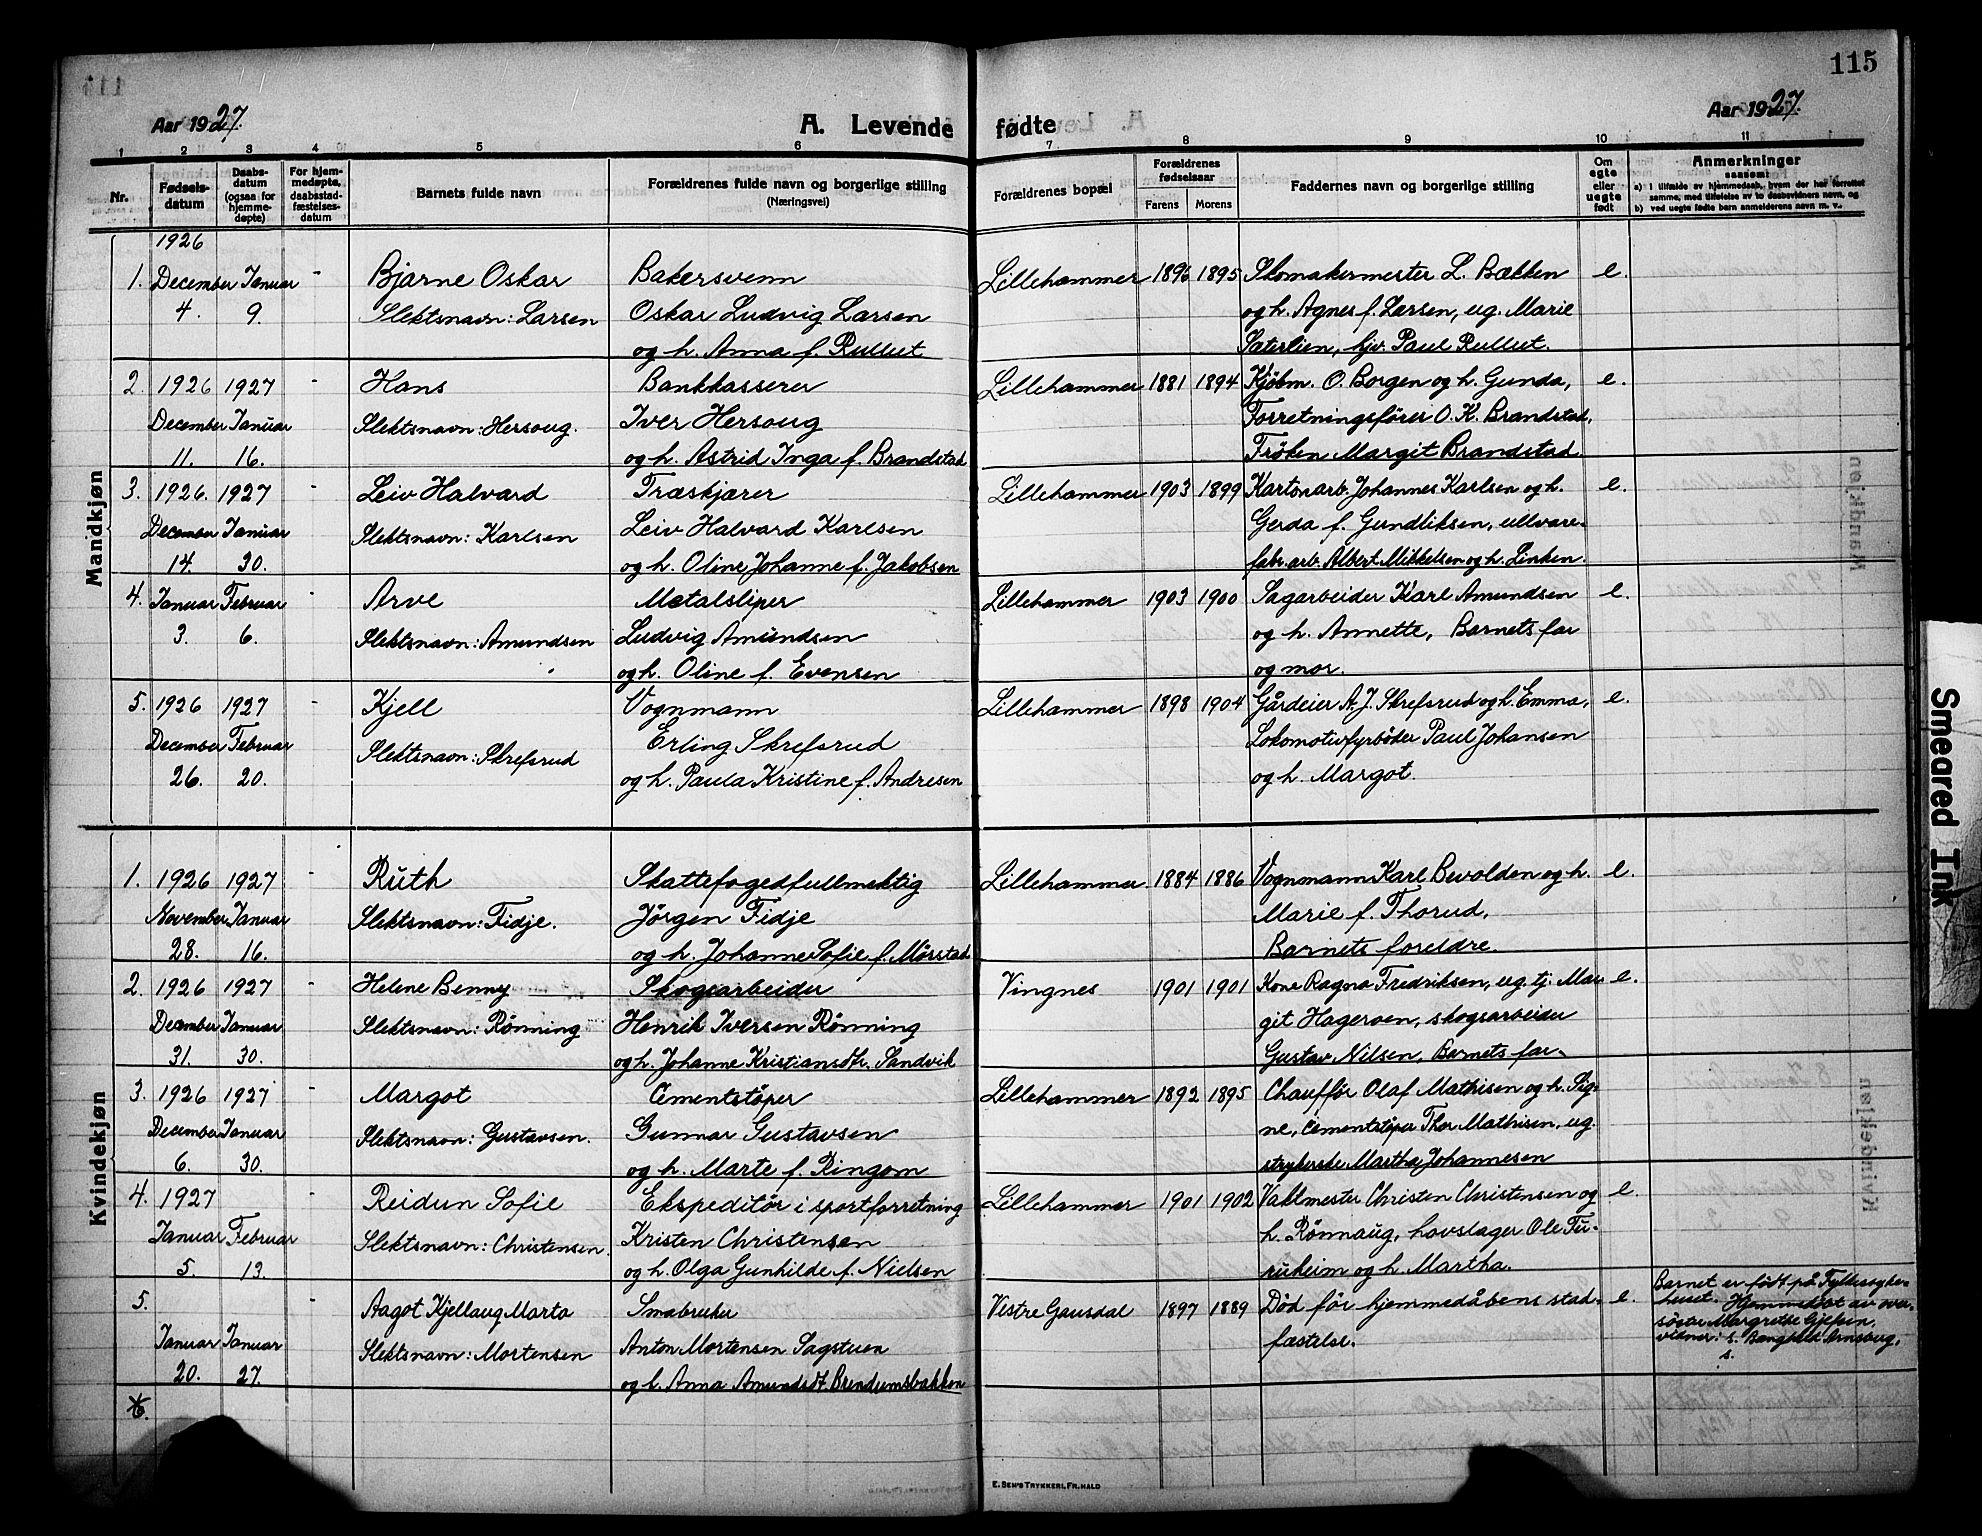 115
Aar 1927.
A. Levende fødte
Aar 1927.
1 2 3 4 5 6 7 8 9 10 11
Nr.
Fødsels-
datum
Daabs-
datum
(ogsaa for
hjemme-
døpte)
For hjem-
medøpte,
daabsstad-
fæstelses-
datum
Barnets fulde navn
Forældrenes fulde navn og borgerlige stilling
(Næringsvei)
Forældrenes bopæl
Forældrenes
fødselsaar
Farens Morens
Faddernes navn og borgerlige stilling
Om
egte
eller
uegte
født
Anmerkninger
saasom:
a) i tilfælde av hjemmedaab, hvem der har forrettet
samme, med tilføielse av to daabsvidners navn, og
b) ved uegte fødte barn anmelderens navn m. v.
Mandkjøn
1926
1. December Januar - Bjarne Oskar Bakersvenn Lillehammer 1896 1895 Skomakermester L. Bækken e.
4. 9. Slektsnavn: Larsen Oskar Ludvig Larsen og h. Agnes f. Larsen, ug. Marie
og h. Anna f. Rullut Sæterlien, hjv. Paul Rullut.
2. 1926 1927 - Hans Bankkasserer Lillehammer 1881 1894 Kjøbm. O. Borgen og h. Gunda, e.
December Januar Slektsnavn: Hersoug. Iver Hersoug Forretningsfører O. K. Brandstad,
11. 16. og h. Astrid Inga f. Brandstad Frøken Margit Brandstad
3. 1926. 1927 - Leiv Halvard Træskjærer Lillehammer 1903 1899 Kartonarb. Johannes Karlsen og h. e.
December Januar Slektsnavn: Karlsen Leiv Halvard Karlsen Gerda f. Gundliksen, ullvare-
14. 30. og h. Oline Johanne f. Jakobsen fabr. arb. Albert Mikkelsen og h. Linken.
4. Januar Februar - Arve Metalsliper Lillehammer 1903 1900 Sagarbeider Karl Amundsen e.
3. 6. Slektsnavn: Amundsen Ludvig Amundsen og h. Annette, Barnets far
og h. Oline f. Evensen og mor.
5. 1926 1927 - Kjell Vognmann Lillehammer 1898 1904 Gårdeier A. J. Skrefsrud og h. Emma, e.
December Februar Slektsnavn: Skrefsrud Erling Skrefsrud Lokomotivfyrbøder Paul Johansen
26. 20. og h. Paula Kristine f. Andresen og h. Margot.
Kvindekjøn
1. 1926 1927 - Ruth Skattefogedfullmektig Lillehammer 1884 1886 Vognmann Karl Bevolden og h. e.
November Januar Slektsnavn: Fidje. Jörgen Fidje Marie f. Thorud,
28. 16. og h. Johanne Sofie f. Mørstad Barnets foreldre.
2. 1926 1927 - Helene Benny Skogsarbeider Vingnes 1901 1901 Kone Ragna Fredriksen, ug. tj. Mar- e.
December Januar Slektsnavn: Rønning Henrik Iversen Rønning git Hageroen, skogsarbeider
31. 30. og h. Johanne Kristiansdtr. Sandvik Gustav Nilsen, Barnets far.
3. 1926 1927 - Margot Cementstøper Lillehammer 1892 1895 Chauffør Olaf Mathisen og h. Sig- e.
December Januar Slektsnavn: Gustavsen. Gunnar Gustavsen ne, Cementstøper Thor Mathisen, ug.
6. 30. og h. Marte f. Ringom strykerske Martha Johannesen
4. 1927 - Reidun Sofie Ekspeditør i sportforretning Lillehammer 1901 1902 Vaktmester Christen Christensen og e.
Januar Februar Slektsnavn: Christensen. Kristen Christensen h. Rønnaug, hovslager Ole Fu-
5. 13. og h. Olga Gunhilde f. Nielsen ruheim og h. Martha.
5. - Aagot Kjellaug Marta Småbruker Vestre Gausdal 1897 1889 Død før hjemmedåbens stad- e. Barnet er født på Fylkessyke-
Januar Januar Slektsnavn: Mortensen Anton Mortensen Sagstuen fæstelse. huset. Hjemmedøbt av over-
20. 27. og h. Anna Amundsdt. Brendumsbakken søster Margrethe
vidner: s.
s.
6.
E. SEM'S TRYKKERI, FR.HALD
Smeared Ink